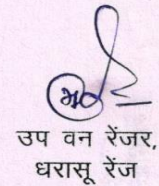 उप वन रेंजर,
धरासू रेंज